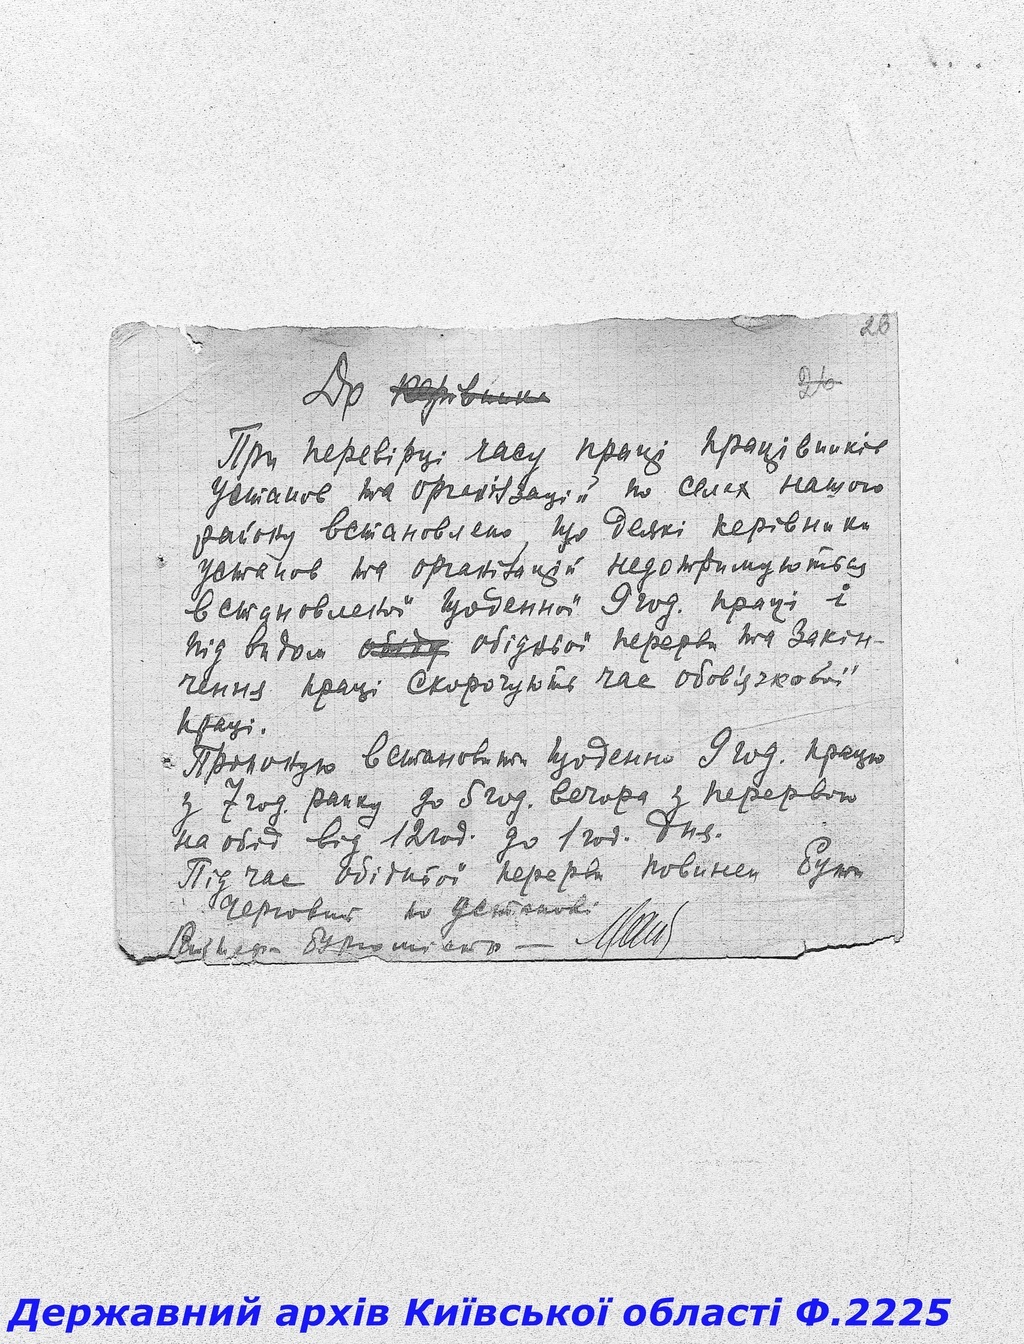 26
До керівника
26
При перевірці часу праці працівників
установ та організацій по селах нашого
району встановлено, що деякі керівники
установ та організацій недотримуються
встановленої щоденної 9 год. праці і
під видом обіду обідньої перерви та закін-
чення праці скорочують час обов'язкової
праці.
Пропоную встановити щоденно 9 год. працю
з 7 год. ранку до 5 год. вечора з перервою
на обід від 12 год. до 1 год. дня.
Під час обідньої перерви повинен бути
черговий по установі
бургомістр —
Державний архів Київської області Ф.2225